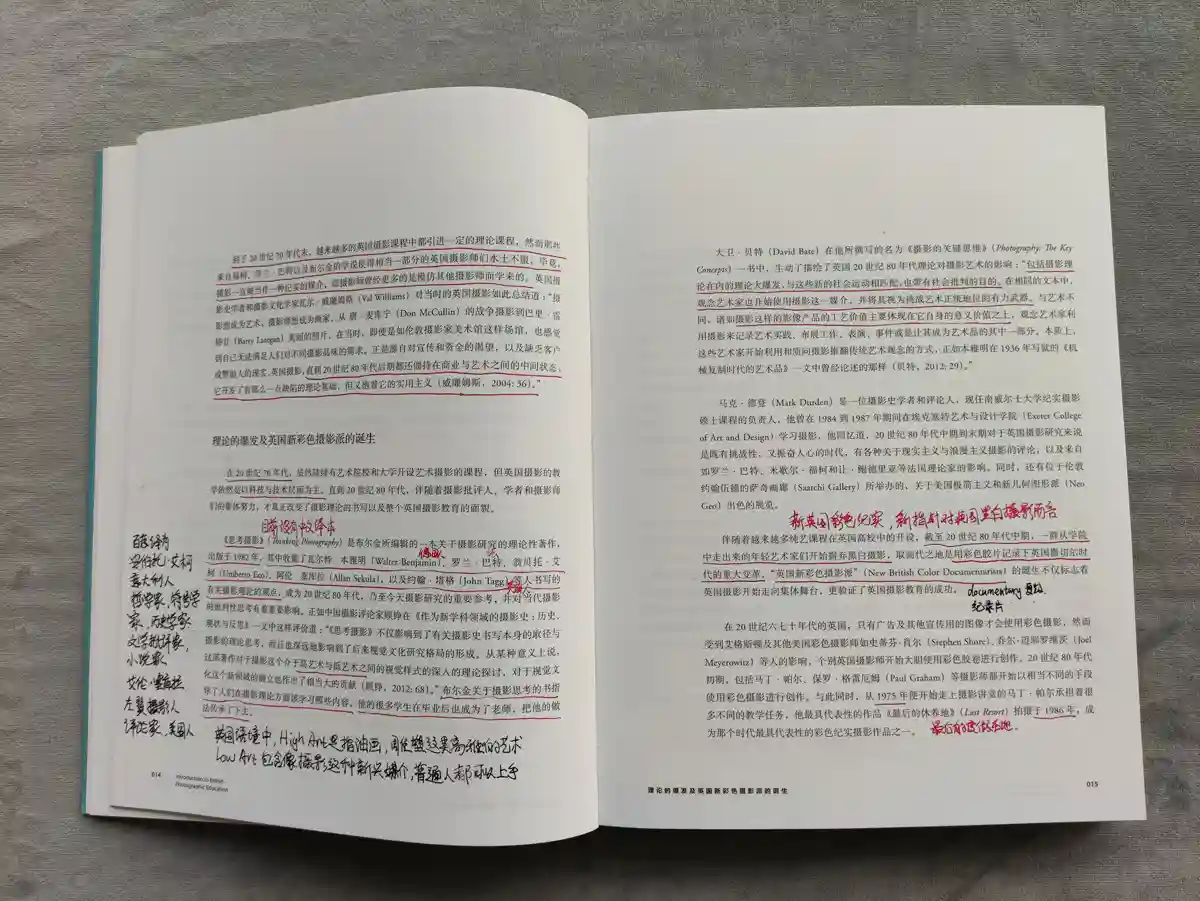 到了 20 世纪 70 年代末，越来越多的英国摄影课程中都引进一定的理论课程，然而那些
来自福柯、罗兰·巴特以及布尔金的学说使得相当一部分的英国摄影师们水土不服，毕竟，
摄影一直被当作一种纪实的媒介，即摄影师曾经更多的是模仿其他摄影师而学来的。英国摄
影史学者和摄影文化学家瓦尔·威廉姆斯（Val Williams）对当时的英国摄影如此总结道：“摄
影想成为艺术，摄影师想成为画家，从 唐·麦库宁（Don McCullin）的战争摄影到巴里·雷
特甘（Barry Lategan）美丽的照片，在当时，即便是如伦敦摄影家美术馆这样场馆，也感觉
到自己无法满足人们对不同摄影品味的需求。正是源自对宣传和资金的渴望，以及缺乏客户
或赞助人的现实，英国摄影，直到 20 世纪 80 年代后期都还维持在商业与艺术之间的中间状态：
它开发了有那么一点缺陷的理论基础，但又拖着它的实用主义（威廉姆斯，2004: 36）。”
理论的爆发及英国新彩色摄影派的诞生
在 20 世纪 70 年代，虽然陆续有艺术院校和大学开设艺术摄影的课程，但英国摄影的教
学依然是以科技与技术层面为主。直到 20 世纪 80 年代，伴随着摄影批评人、学者和摄影师
们的集体努力，才真正改变了摄影理论的书写以及整个英国摄影教育的面貌。
目前没有中文译本
《思考摄影》（Thinking Photography）是布尔金所编辑的一本关于摄影研究的理论性著作，
出版于 1982 年，其中收集了瓦尔特·本雅明（Walter Benjamin）、罗兰·巴特、翁贝托·艾
柯（Umberto Eco）、阿伦·塞库拉（Allan Sekula），以及约翰·塔格（John Tagg）等人书写的
有关摄影理论的观点，成为 20 世纪 80 年代，乃至今天摄影研究的重要参考，并对当代摄影
的批判性思考有着重要影响。正如中国摄影评论家顾铮在《作为新学科领域的摄影史：历史、
现状与反思》一文中这样评价道：“《思考摄影》不仅影响到了有关摄影史书写本身的取径与
摄影的理论思考，而且也深远地影响到了后来视觉文化研究格局的形成。从某种意义上说，
这部著作对于摄影这个介于高艺术与低艺术之间的视觉样式的深入的理论探讨，对于视觉文
化这个新领域的确立也作出了相当大的贡献（顾铮，2012: 68）。”布尔金关于摄影思考的书指
导了人们在摄影理论方面该学习哪些内容，他的很多学生在毕业后也成为了老师，把他的做
法传承了下去。
意大利人
哲学家、符号学
家、历史学家
文学批评家，
小说家
艾伦·塞库拉
左翼摄影人
评论家，美国人
英国语境中，High Art 是指油画，周佳塑这类高不可怕的艺术
Low Art 包含像摄影这种新兴媒介，普通人都可以上手
014
Introduction to British
Photographic Education
大卫·贝特（David Bate）在他所撰写的名为《摄影的关键思维》（Photography: The Key
Concepts）一书中，生动了描绘了英国 20 世纪 80 年代理论对摄影艺术的影响：“包括摄影理
论在内的理论大爆发，与这些新的社会运动相匹配，也带有社会批判的目的。在相同的文本中，
观念艺术家也开始使用摄影这一媒介，并将其视为挑战艺术正统地位的有力武器。与艺术不
同，诸如摄影这样的影像产品的工艺价值主要体现在它自身的意义价值之上，观念艺术家利
用摄影来记录艺术实践、布展工作、表演、事件或是让其成为艺术品的其中一部分。本质上，
这些艺术家开始利用和质问摄影推翻传统艺术观念的方式，正如本雅明在 1936 年写就的《机
械复制时代的艺术品》一文中曾经论述的那样（贝特，2012: 29）。”
马克·德登（Mark Durden）是一位摄影史学者和评论人，现任南威尔士大学纪实摄影
硕士课程的负责人，他曾在 1984 到 1987 年期间在埃克塞特艺术与设计学院（Exeter College
of Art and Design）学习摄影，他回忆道，20 世纪 80 年代中期到末期对于英国摄影研究来说
是既有挑战性，又振奋人心的时代，有各种关于现实主义与浪漫主义摄影的评论，以及来自
如罗兰·巴特、米歇尔·福柯和让·鲍德里亚等法国理论家的影响。同时，还有位于伦敦
约翰伍德的萨奇画廊（Saatchi Gallery）所举办的、关于美国极简主义和新几何图形派（Neo
Geo）出色的展览。
新英国彩色纪实，新指针对英国黑白摄影而言
伴随着越来越多纯艺课程在英国高校中的开设，截至 20 世纪 80 年代中期，一群从学院
中走出来的年轻艺术家们开始摒弃黑白摄影，取而代之地是用彩色胶片记录下英国撒切尔时
代的重大变革，“英国新彩色摄影派”（New British Color Documentarians）的诞生不仅标志着
英国摄影开始走向集体舞台，更验证了英国摄影教育的成功。
documentary
纪录片
在 20 世纪六七十年代的英国，只有广告及其他宣传用的图像才会使用彩色摄影，然而
受到艾格斯顿及其他美国彩色摄影师如史蒂芬·肖尔（Stephen Shore）、乔尔·迈耶罗维茨（Joel
Meyerowitz）等人的影响，个别英国摄影师开始大胆使用彩色胶卷进行创作。20 世纪 80 年代
初期，包括马丁·帕尔、保罗·格雷厄姆（Paul Graham）等摄影师都开始以相当不同的手段
使用彩色摄影进行创作。与此同时，从 1975 年便开始走上摄影讲堂的马丁·帕尔承担着很
多不同的教学任务，他最具代表性的作品《最后的休养地》（Last Resort）拍摄于 1986 年，成
为那个时代最具代表性的彩色纪实摄影作品之一。
最后的度假圣地.
理论的爆发及英国新彩色摄影派的诞生
015